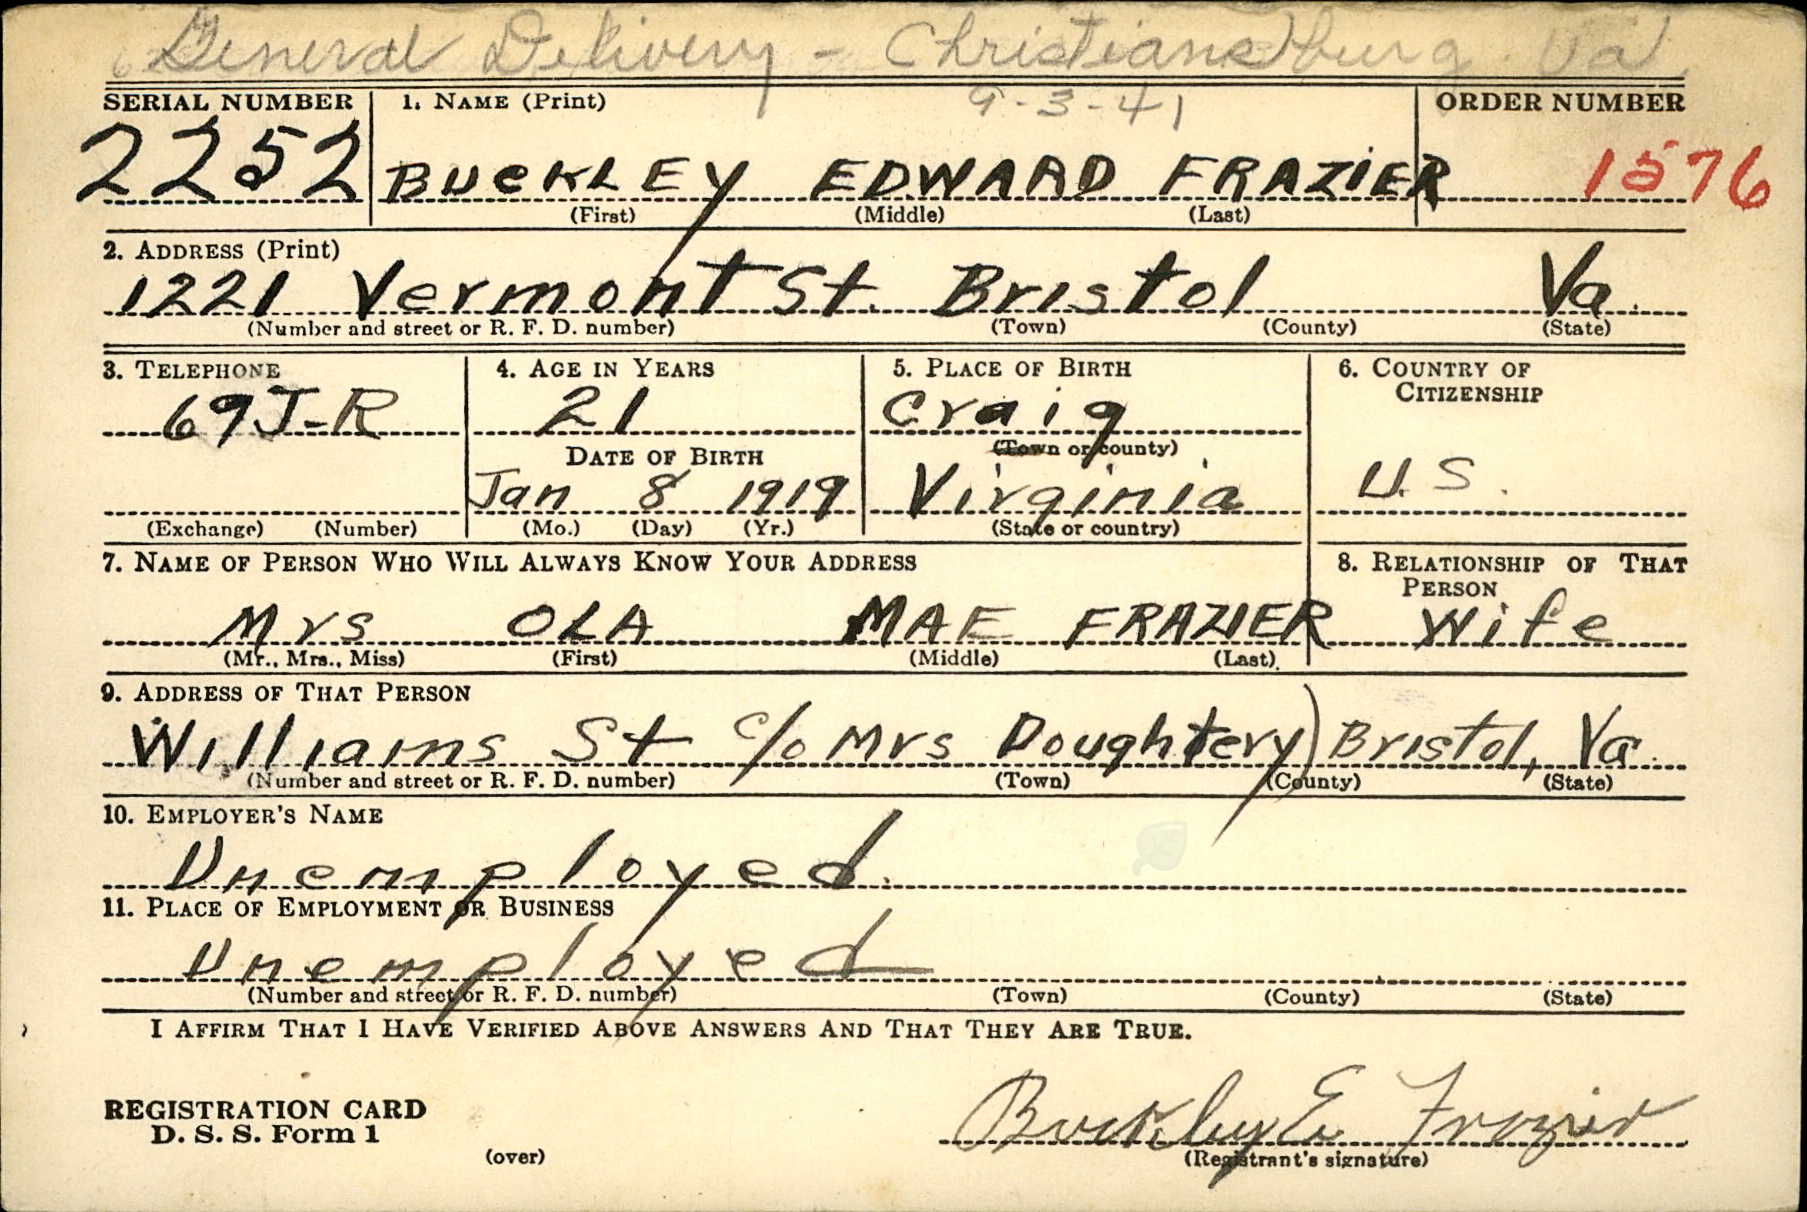 General Delivery - Christiansburg Va.
SERIAL NUMBER 1. NAME (Print) 9-3-41 ORDER NUMBER
2252 BUCKLEY EDWARD FRAZIER 1576
(First) (Middle) (Last)
2. ADDRESS (Print)
1221 Vermont St. Bristol Va.
(Number and street or R. F. D. number) (Town) (County) (State)
3. TELEPHONE 4. AGE IN YEARS 5. PLACE OF BIRTH 6. COUNTRY OF CITIZENSHIP
69J-R 21 Craig
DATE OF BIRTH (Town or county)
Jan 8 1919 Virginia U.S.
(Exchange) (Number) (Mo.) (Day) (Yr.) (State or country)
7. NAME OF PERSON WHO WILL ALWAYS KNOW YOUR ADDRESS 8. RELATIONSHIP OF THAT PERSON
Mrs OLA MAE FRAZIER Wife
(Mr., Mrs., Miss) (First) (Middle) (Last)
9. ADDRESS OF THAT PERSON
Williams St c/o Mrs Doughtery) Bristol, Va.
(Number and street or R. F. D. number) (Town) (County) (State)
10. EMPLOYER'S NAME
Unemployed.
11. PLACE OF EMPLOYMENT OR BUSINESS
Unemployed
(Number and street or R. F. D. number) (Town) (County) (State)
I AFFIRM THAT I HAVE VERIFIED ABOVE ANSWERS AND THAT THEY ARE TRUE.
REGISTRATION CARD
D. S. S. Form 1 Buckley E Frazier
(over) (Registrant's signature)